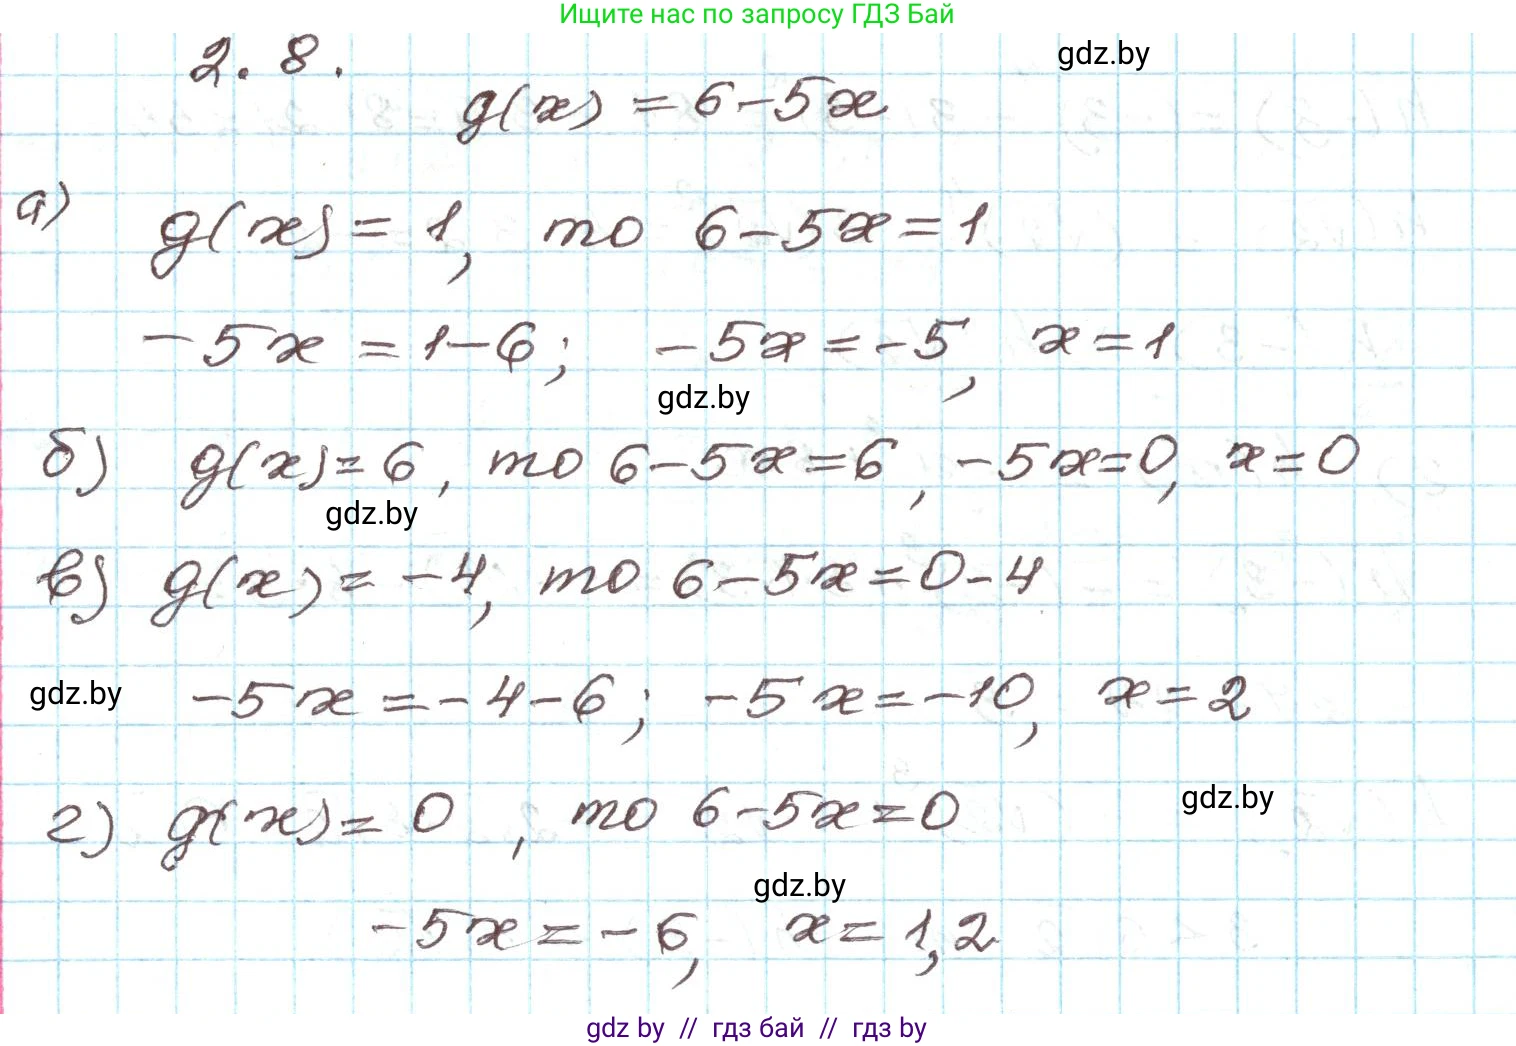 Ищите нас по запросу ГДЗ Бай
2.8.
gdz.by
g(x) = 6-5x
а) g(x) = 1, то 6-5x=1
-5x = 1-6; -5x = -5, x=1
gdz.by
б) g(x)=6, то 6-5x=6, -5x=0, x=0
gdz.by
в) g(x) = -4, то 6-5x=0-4
gdz.by
-5x = -4-6; -5x = -10, x=2
gdz.by
г) g(x)=0, то 6-5x=0
gdz.by
-5x = -6, x=1,2
gdz by // гдз бай // гдз by